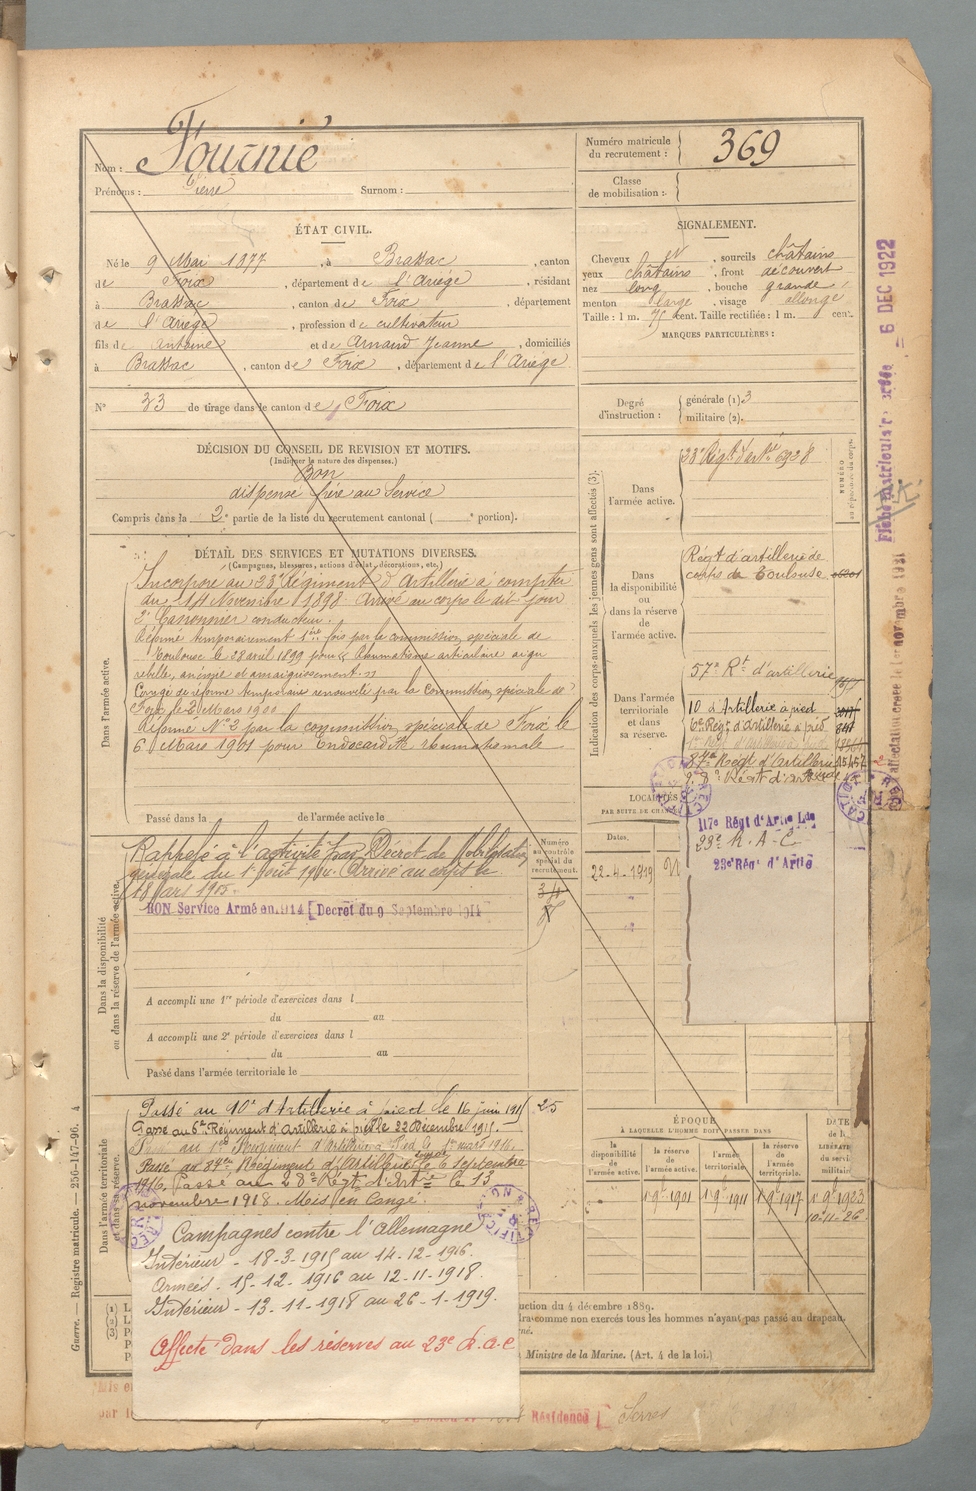 Nom : Fournié
Prénoms : Pierre Surnom :
Numéro matricule du recrutement : 369
Classe de mobilisation :
ÉTAT CIVIL.
Né le 9 Mai 1877, à Brassac, canton
de Foix, département de l'Ariège, résidant
à Brassac, canton de Foix, département
de l'Ariège, profession de cultivateur
fils de Antoine et de Arnaud Jeanne, domiciliés
à Brassac, canton de Foix, département de l'Ariège
N° 33 de tirage dans le canton de Foix
SIGNALEMENT.
Cheveux, sourcils châtains
yeux châtains, front découvert
nez long, bouche grande,
menton large, visage allongé
Taille : 1 m. 75 cent. Taille rectifiée : 1 m. cent.
MARQUES PARTICULIÈRES :
Degré d'instruction : générale (1). 3
militaire (2).
DÉCISION DU CONSEIL DE REVISION ET MOTIFS.
(Indiquer la nature des dispenses.)
Bon
dispensé frère au Service
Compris dans la 2e partie de la liste du recrutement cantonal ( e portion).
DÉTAIL DES SERVICES ET MUTATIONS DIVERSES.
(Campagnes, blessures, actions d'éclat, décorations, etc.)
Dans l'armée active.
Incorporé au 23e Régiment d'Artillerie à compter
du 14 Novembre 1898. Arrivé au corps le dit jour
2e Canonnier conducteur.
Réformé temporairement 1ère fois par la commission spéciale de
Toulouse le 28 avril 1899 pour « Rhumatisme articulaire aigu
rebelle, anémie et amaigrissement. »
Congé de réforme temporaire renouvelé par la Commission spéciale de
Foix le 2 Mars 1900
Réformé N° 2 par la commission spéciale de Foix le
6 Mars 1901 pour Endocardite rhumatismale
Passé dans la de l'armée active le
Dans la disponibilité ou dans la réserve de l'armée active.
Rappelé à l'activité par Décret de Mobilisation
générale du 1er Août 1914. Arrivé au corps le
18 Mars 1915.
BON Service Armé en 1914 [Decret du 9 Septembre 1914
Numéro au contrôle spécial du recrutement.
A accompli une 1re période d'exercices dans l
du au
A accompli une 2e période d'exercices dans l
du au
Passé dans l'armée territoriale le
Dans l'armée territoriale et dans sa réserve.
Passé au 10e d'Artillerie à pied le 16 juin 1915 25
Passé au 6e Régiment d'Artillerie à pied le 22 Décembre 1915.
au 1er Régiment d'Artillerie à Pied le 1er mars 1916.
Passé au 87e Régiment d'Artillerie Lourde le 6 Septembre
1916. Passé au 28e Régt d'Artie le 13
novembre 1918. Mois en Congé.
Campagnes contre l'Allemagne
Intérieur - 18-3-1915 au 14-12-1916.
Armées - 15-12-1916 au 12-11-1918.
Intérieur - 13-11-1918 au 26-1-1919.
Affecté dans les réserves au 23e R.A.C
Indication des corps auxquels les jeunes gens sont affectés (3).
Dans l'armée active.
23e Régt d'Artie 6928
Dans la disponibilité ou dans la réserve de l'armée active.
Régt d'artillerie de
corps de Toulouse
Dans l'armée territoriale et dans sa réserve.
57e Rt d'artillerie
10 d'Artillerie à pied
6e Régt d'Artillerie à pied
87e Régt d'Artillerie 15457
117e Régt d'Artie Lde
23e R.A.C
23e Régt d'Artie
LOCALITÉS
Dates.
22-4-1919
ÉPOQUE
À LAQUELLE L'HOMME DOIT PASSER DANS
la disponibilité de l'armée active.
la réserve de l'armée active.
l'armée territoriale.
la réserve de l'armée territoriale.
DATE de la LIBÉRATION du service militaire
1er 9bre 1901 1er 9bre 1911 1er 9bre 1917 1er 9bre 1923
10-11-26
uction du 4 décembre 1889.
comme non exercés tous les hommes n'ayant pas passé au drapeau.
Ministre de la Marine. (Art. 4 de la loi.)
Résidence [ Serres
Guerre. — Registre matricule. — 256-147-96. 4
6 DEC 1922